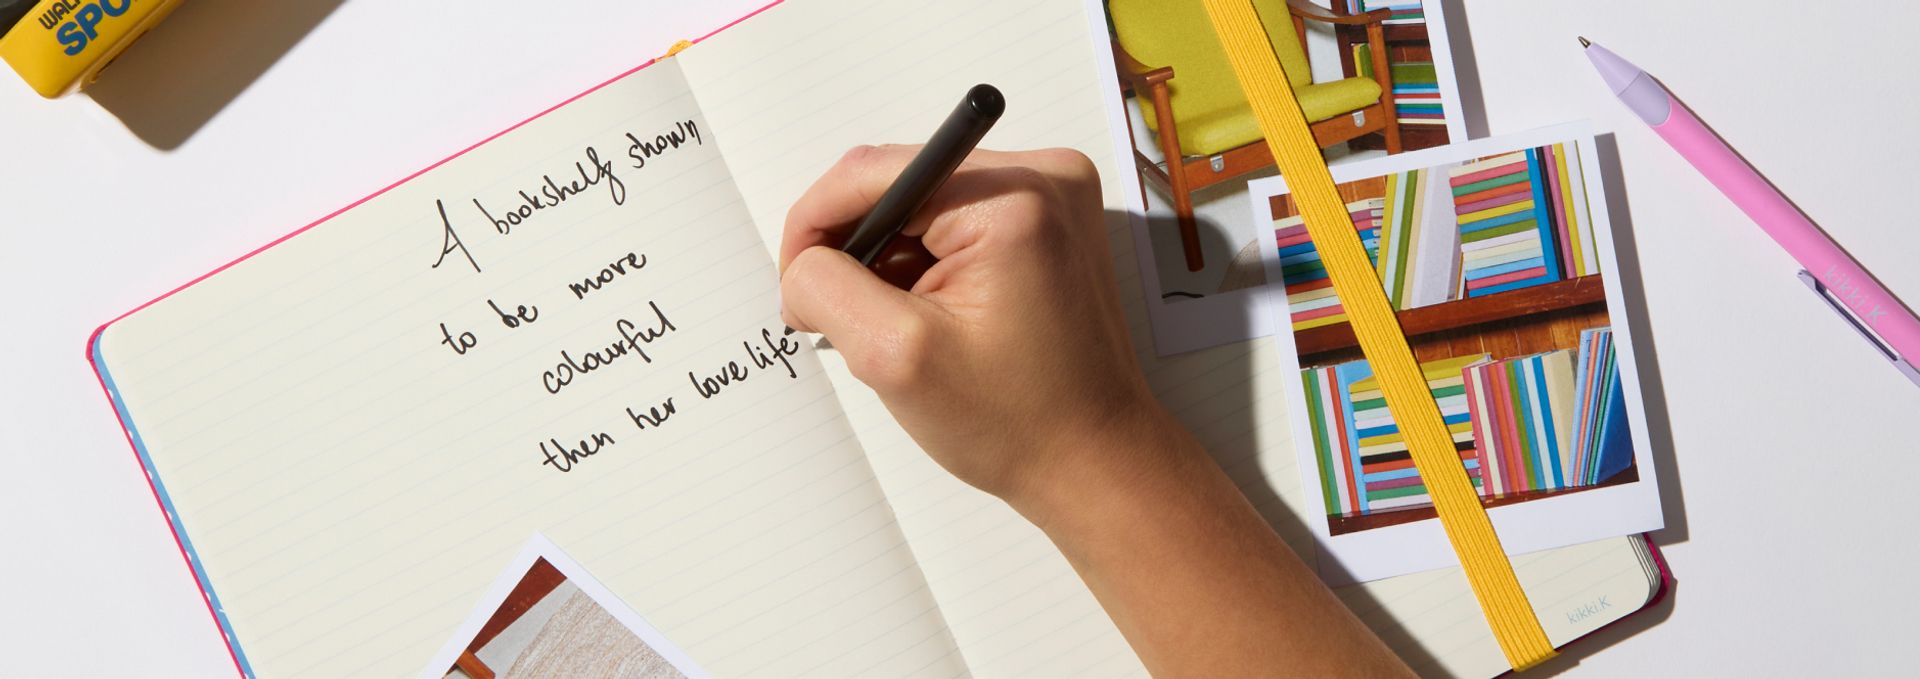 SPO
A bookshelf shown
to be more
colourful
then her love life
kikki.K
kikki.K